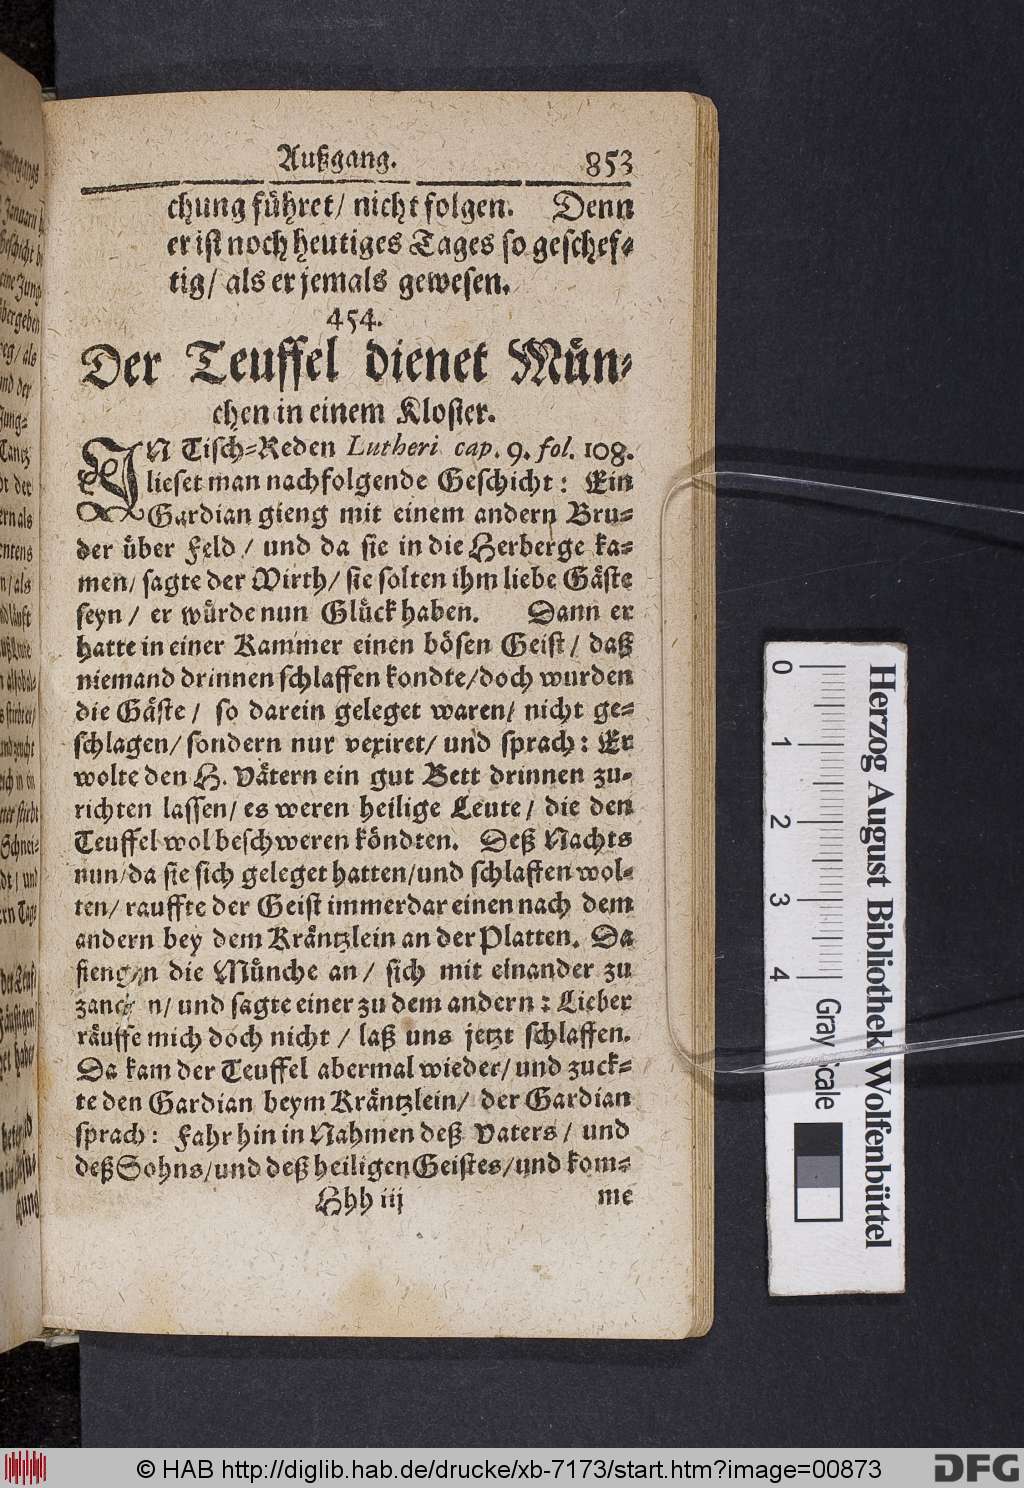 Außgang. 853
chung führet/ nicht folgen. Denn
er ist noch heutiges Tages so geschef-
tig/ als er jemals gewesen.
454.
Der Teuffel dienet Mün-
chen in einem Kloster.
IN Tisch-Reden Lutheri cap. 9. fol. 108.
lieset man nachfolgende Geschicht: Ein
Gardian gieng mit einem andern Bru-
der über Feld / und da sie in die Herberge ka-
men/ sagte der Wirth/ sie solten ihm liebe Gäste
seyn / er würde nun Glück haben. Dann er
hatte in einer Kammer einen bösen Geist / daß
niemand drinnen schlaffen kondte/doch wurden
die Gäste / so darein geleget waren/ nicht ge-
schlagen/ sondern nur vexiret/ und sprach: Er
wolte den H. Vätern ein gut Bett drinnen zu-
richten lassen/ es weren heilige Leute / die den
Teuffel wol beschweren köndten. Deß Nachts
nun/da sie sich geleget hatten/und schlaffen wol-
ten/ rauffte der Geist immerdar einen nach dem
andern bey dem Kräntzlein an der Platten. Da
fiengen die Münche an / sich mit einander zu
zancken/ und sagte einer zu dem andern: Lieber
räuffe mich doch nicht / laß uns jetzt schlaffen.
Da kam der Teuffel abermal wieder/ und zuck-
te den Gardian beym Kräntzlein/ der Gardian
sprach: Fahr hin in Nahmen deß Vaters / und
deß Sohns/und deß heiligen Geistes/und kom-
Hhh iij me
0 1 2 3 4
Gray Scale
Herzog August Bibliothek Wolfenbüttel
© HAB http://diglib.hab.de/drucke/xb-7173/start.htm?image=00873
DFG